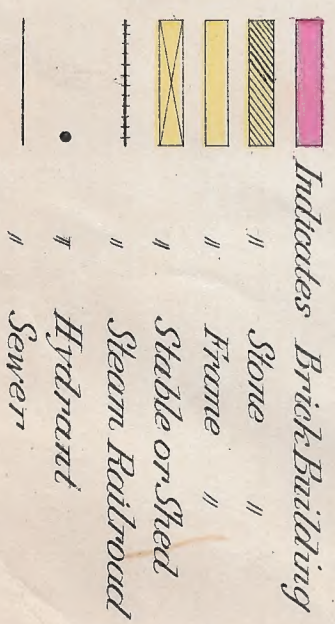 Indicates Brick Building
" Stone "
" Frame "
" Stable or Shed
" Steam Railroad
" Hydrant
" Sewer